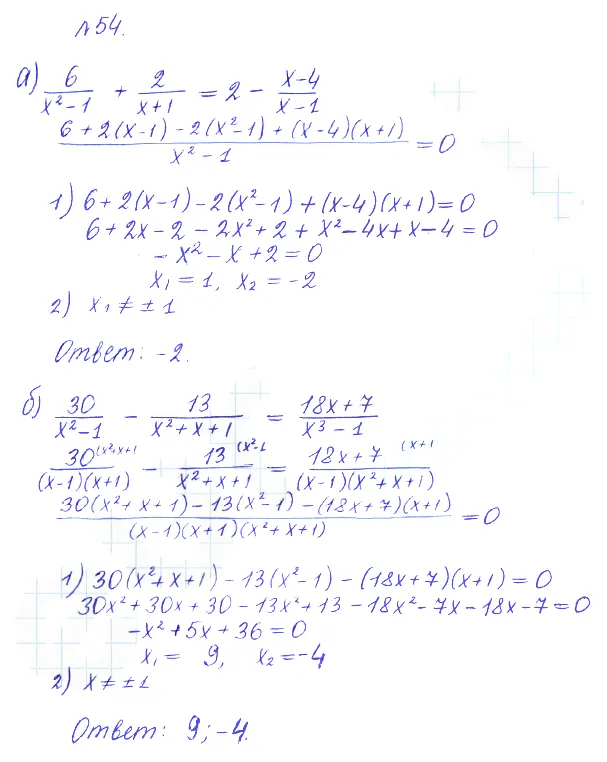 №54.
а) 6/(x²-1) + 2/(x+1) = 2 - (x-4)/(x-1)
(6+2(x-1)-2(x²-1)+(x-4)(x+1))/(x²-1) = 0
1) 6+2(x-1)-2(x²-1)+(x-4)(x+1)=0
6+2x-2-2x²+2+x²-4x+x-4=0
-x²-x+2=0
x₁=1, x₂=-2
2) x₁≠±1
Ответ: -2.
б) 30/(x²-1) - 13/(x²+x+1) = (18x+7)/(x³-1)
30^(x²+x+1/((x-1)(x+1)) - 13^(x²-1/(x²+x+1) = 18x+7^(x+1/((x-1)(x²+x+1))
(30(x²+x+1)-13(x²-1)-(18x+7)(x+1))/((x-1)(x+1)(x²+x+1)) = 0
1) 30(x²+x+1)-13(x²-1)-(18x+7)(x+1)=0
30x²+30x+30-13x²+13-18x²-7x-18x-7=0
-x²+5x+36=0
x₁= 9, x₂=-4
2) x≠±1
Ответ: 9;-4.